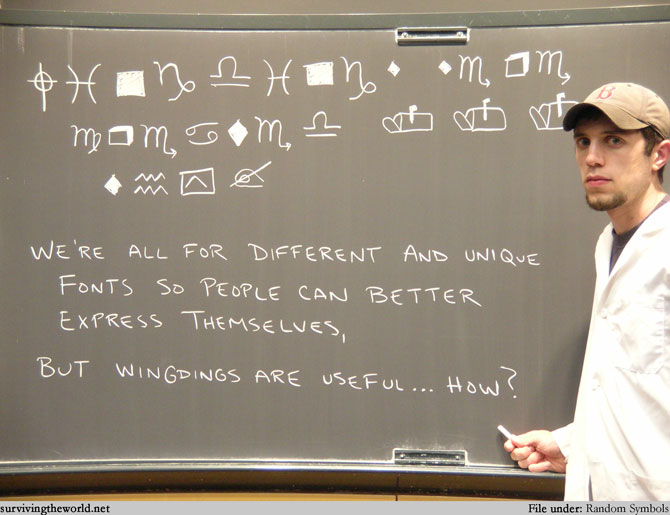 🕈♓■♑♎♓■♑⬧ ⬥♏❒♏
♍❒♏♋⧫♏♎ 📬📬📬
⬥♒⍓✍
WE'RE ALL FOR DIFFERENT AND UNIQUE
FONTS SO PEOPLE CAN BETTER
EXPRESS THEMSELVES,
BUT WINGDINGS ARE USEFUL... HOW?
B
survivingtheworld.net
File under: Random Symbols